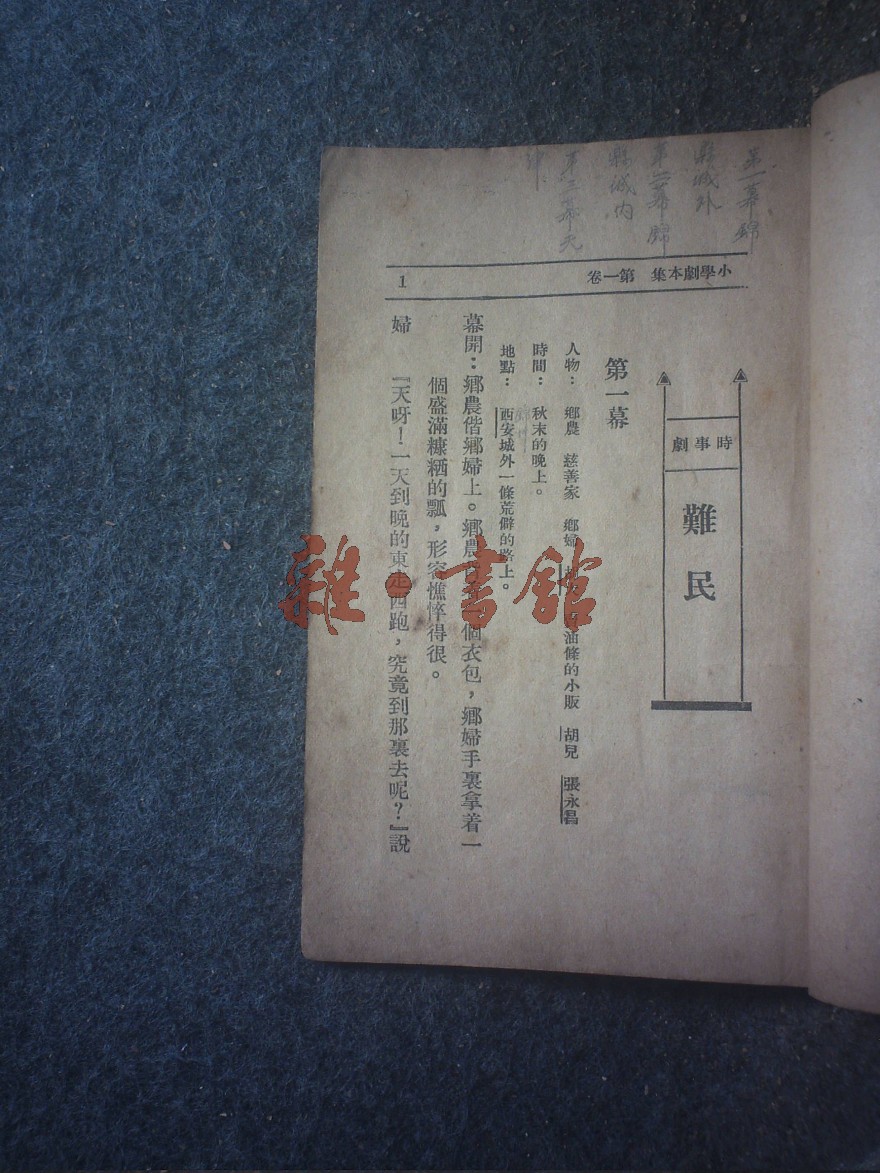 第一幕 錦
縣城外
第二幕 錦
縣城内
第三幕 天
津
小學劇本集 第一卷
1
時事劇
難民
第一幕
人物： 鄉農 慈善家 鄉婦 油條的小販 胡兒 張永昌
時間： 秋末的晚上。
地點： 西安城外一條荒僻的路上。
幕開：鄉農偕鄉婦上。鄉農 個衣包，鄉婦手裏拿着一
個盛滿糠粞的瓢，形容憔悴得很。
婦 『天呀！一天到晚的東走西跑，究竟到那裏去呢？』說
雜·書館